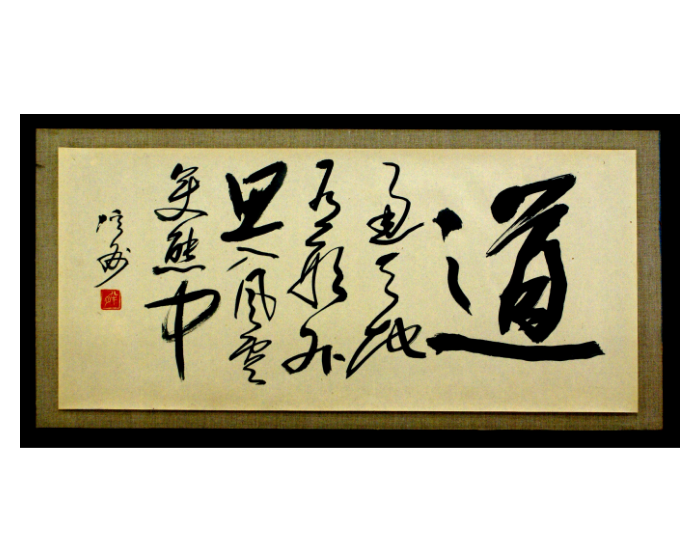 道
通天地
有形外
思入風雲
變態中